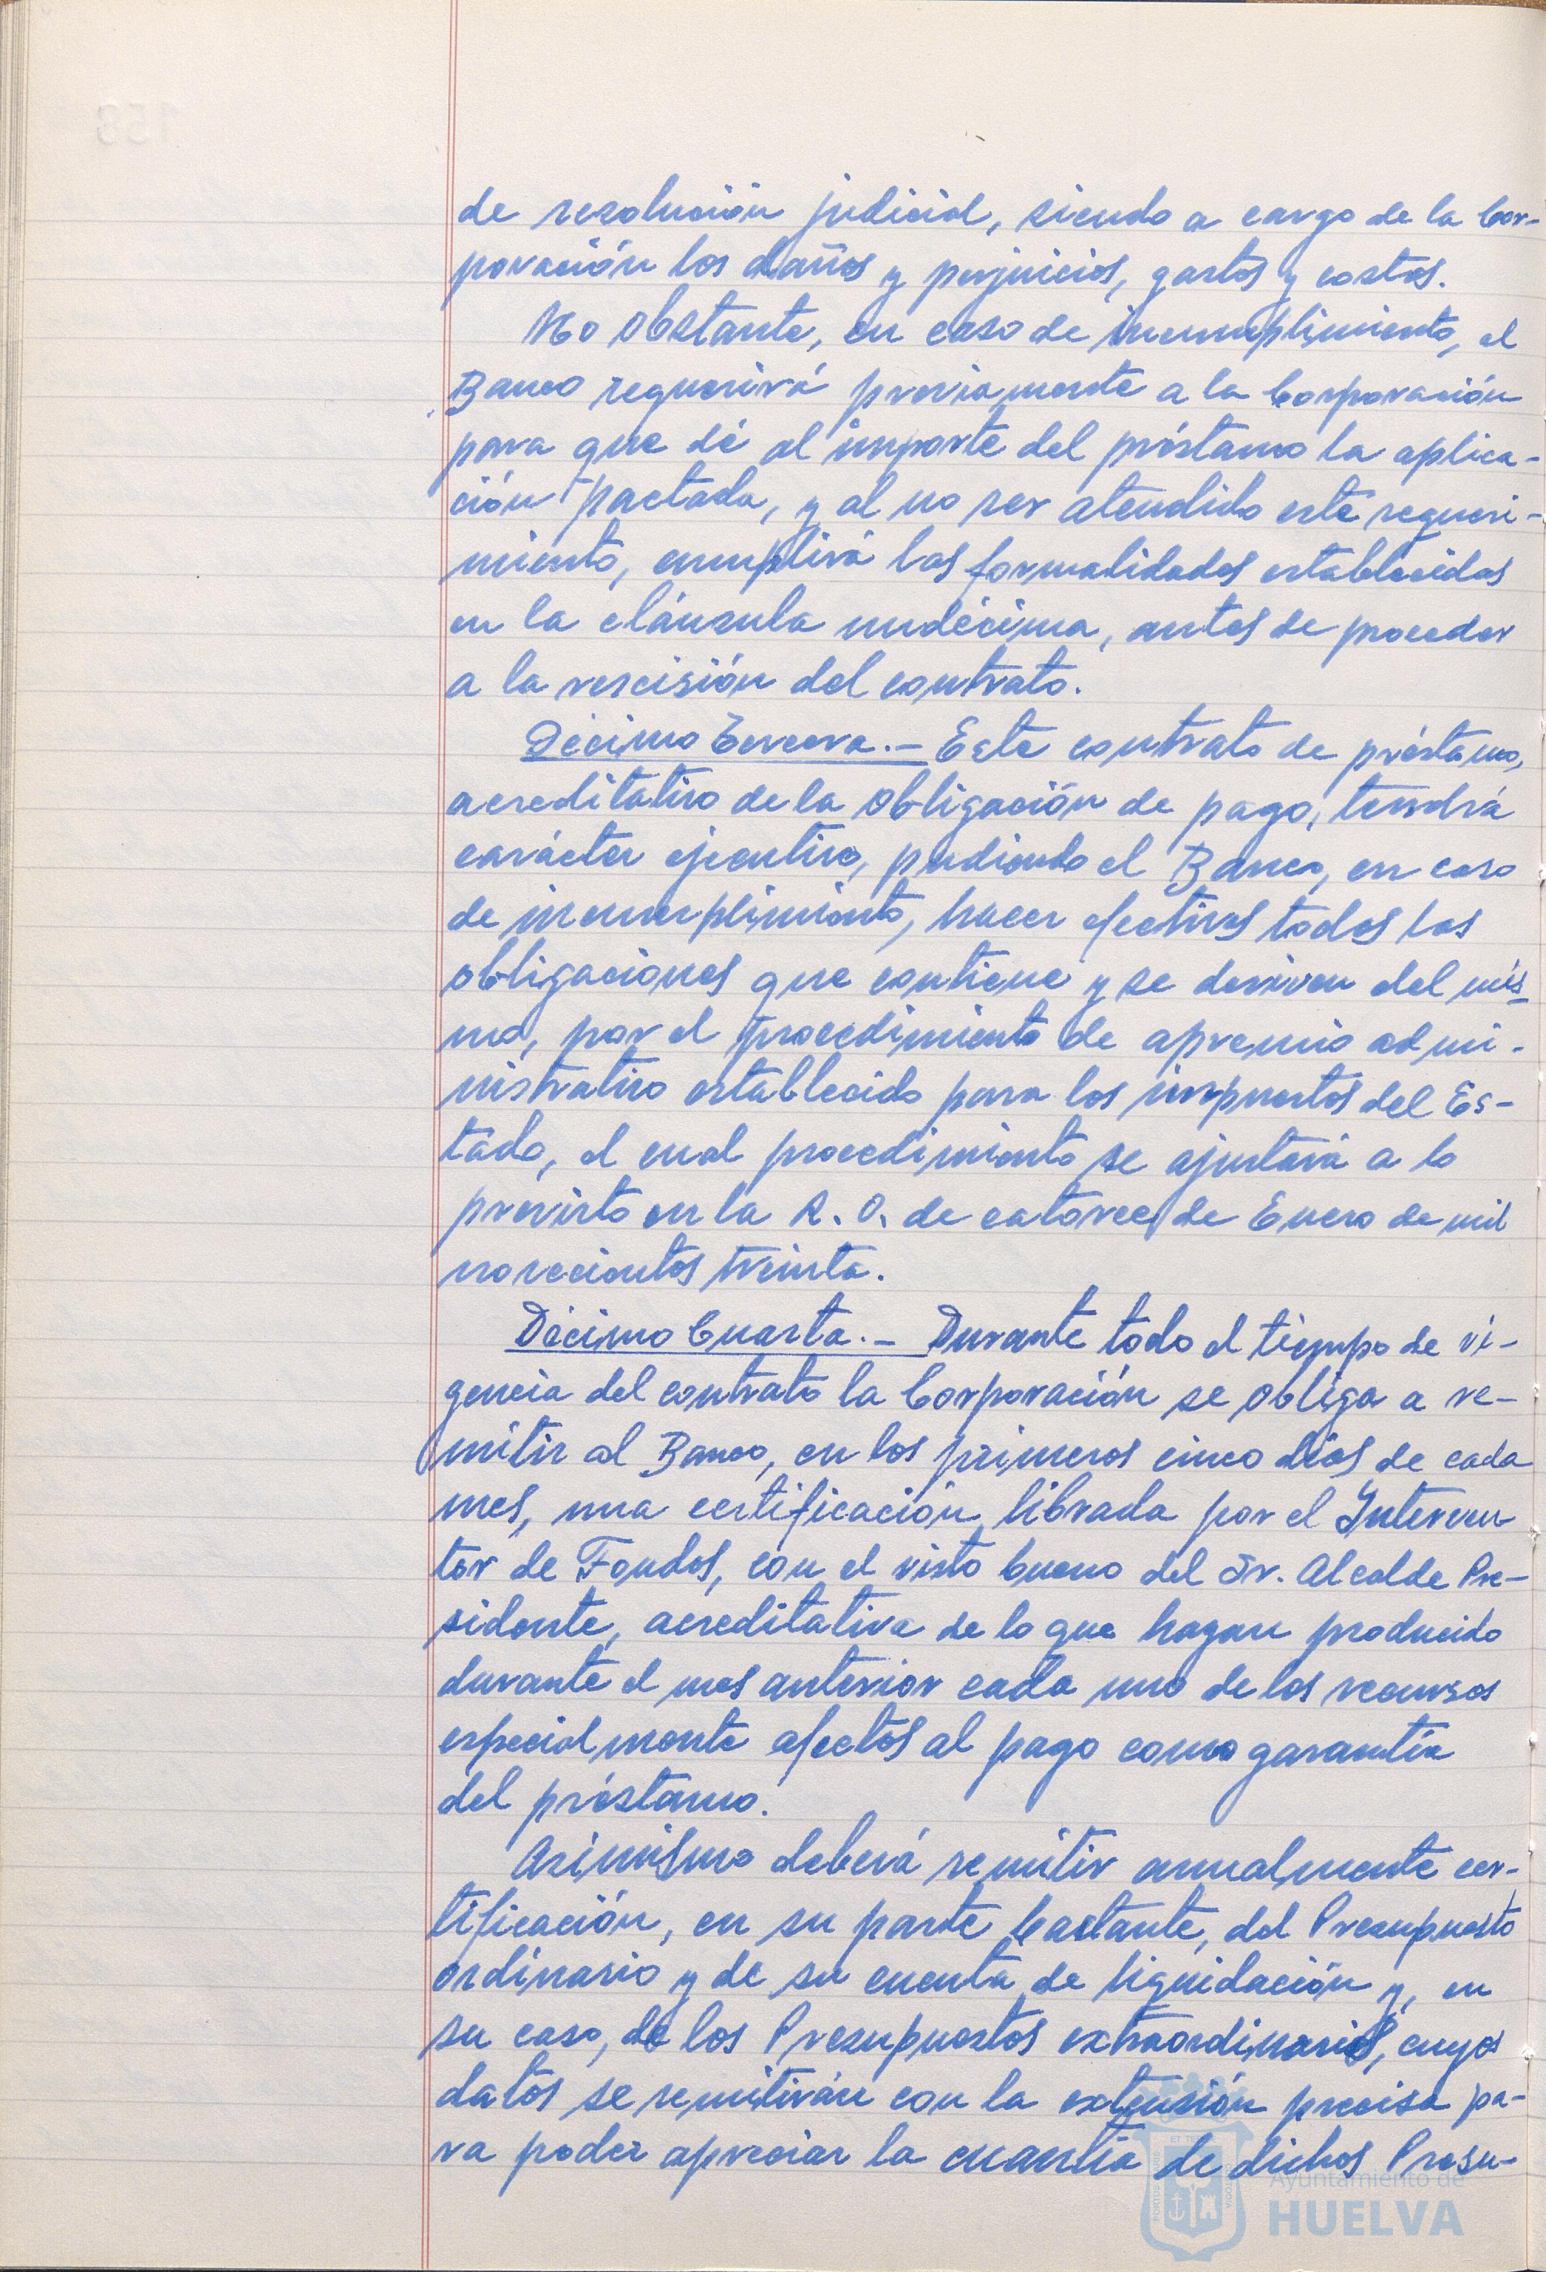 de resolución judicial, siendo a cargo de la Cor-
poración los daños y perjuicios, gastos y costas.
No obstante, en caso de incumplimiento, el
Banco requerirá previamente a la Corporación
para que dé al importe del préstamo la aplica-
ción pactada, y al no ser atendido este requeri-
miento, cumplirá las formalidades establecidas
en la cláusula undécima, antes de proceder
a la rescisión del contrato.
Décimo Tercera.- Este contrato de préstamo,
acreditativo de la obligación de pago, tendrá
carácter ejecutivo, pudiendo el Banco, en caso
de incumplimiento, hacer efectivas todas las
obligaciones que contiene y se deriven del mis
mo, por el procedimiento de apremio admi-
nistrativo establecido para los impuestos del Es-
tado, el cual procedimiento se ajustará a lo
previsto en la R. O. de catorce de Enero de mil
novecientos treinta.
Décimo Cuarta.- Durante todo el tiempo de vi-
gencia del contrato la Corporación se obliga a re-
mitir al Banco, en los primeros cinco días de cada
mes, una certificación, librada por el Interven
tor de Fondos, con el visto bueno del Sr. Alcalde Pre-
sidente, acreditativa de lo que hagan producido
durante el mes anterior cada uno de los recursos
especialmente afectos al pago como garantía
del préstamo.
Asimismo deberá remitir anualmente cer-
tificación, en su parte bastante, del Presupuesto
ordinario y de su cuenta de liquidación y, en
su caso, de los Presupuestos extraordinarios, cuyos
datos se remitirán con la extensión precisa pa-
ra poder apreciar la cuantía de dichos Presu-
Ayuntamiento de
HUELVA